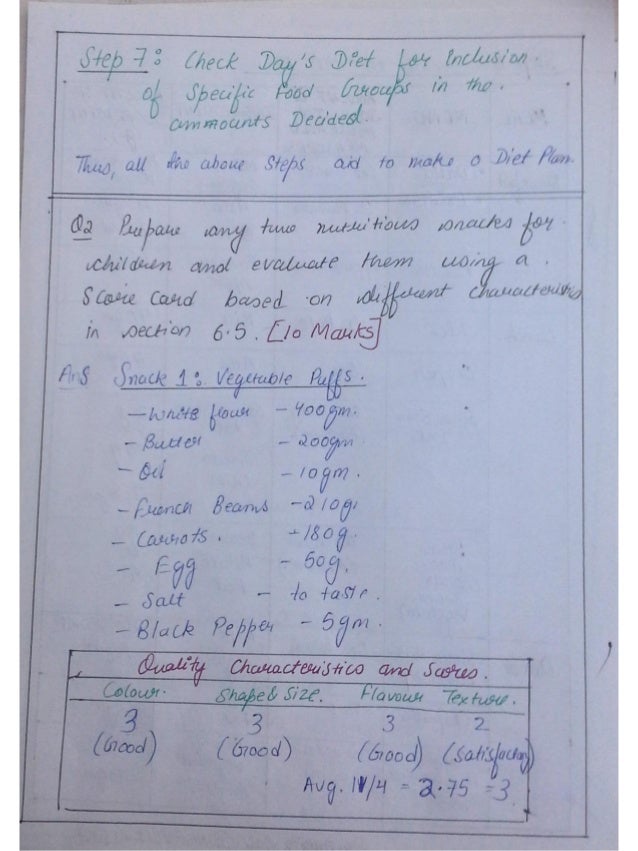 Step 7: Check Day's Diet for Inclusion
of Specific Food Groups in the.
ammounts Decided.
Thus, all the above Steps aid to make a Diet Plan.
Q2 Prepare any two nutritious snacks for
children and evaluate them using a.
Score Card based on different characteristics
in section 6.5. [10 Marks]
Ans Snack 1: Vegetable Puffs.
- White flour - 400gm.
- Butter - 200gm
- Oil - 10gm.
- French Beans - 210g.
- Carrots. - 180g.
- Egg - 50g.
- Salt - to taste.
- Black Pepper - 5gm.
Quality Characteristics and Scores.
Colour. Shape & Size. Flavour Texture.
3 3 3 2
(Good) (Good) (Good) (Satisfactory)
Avg. 11/4 = 2.75 = 3